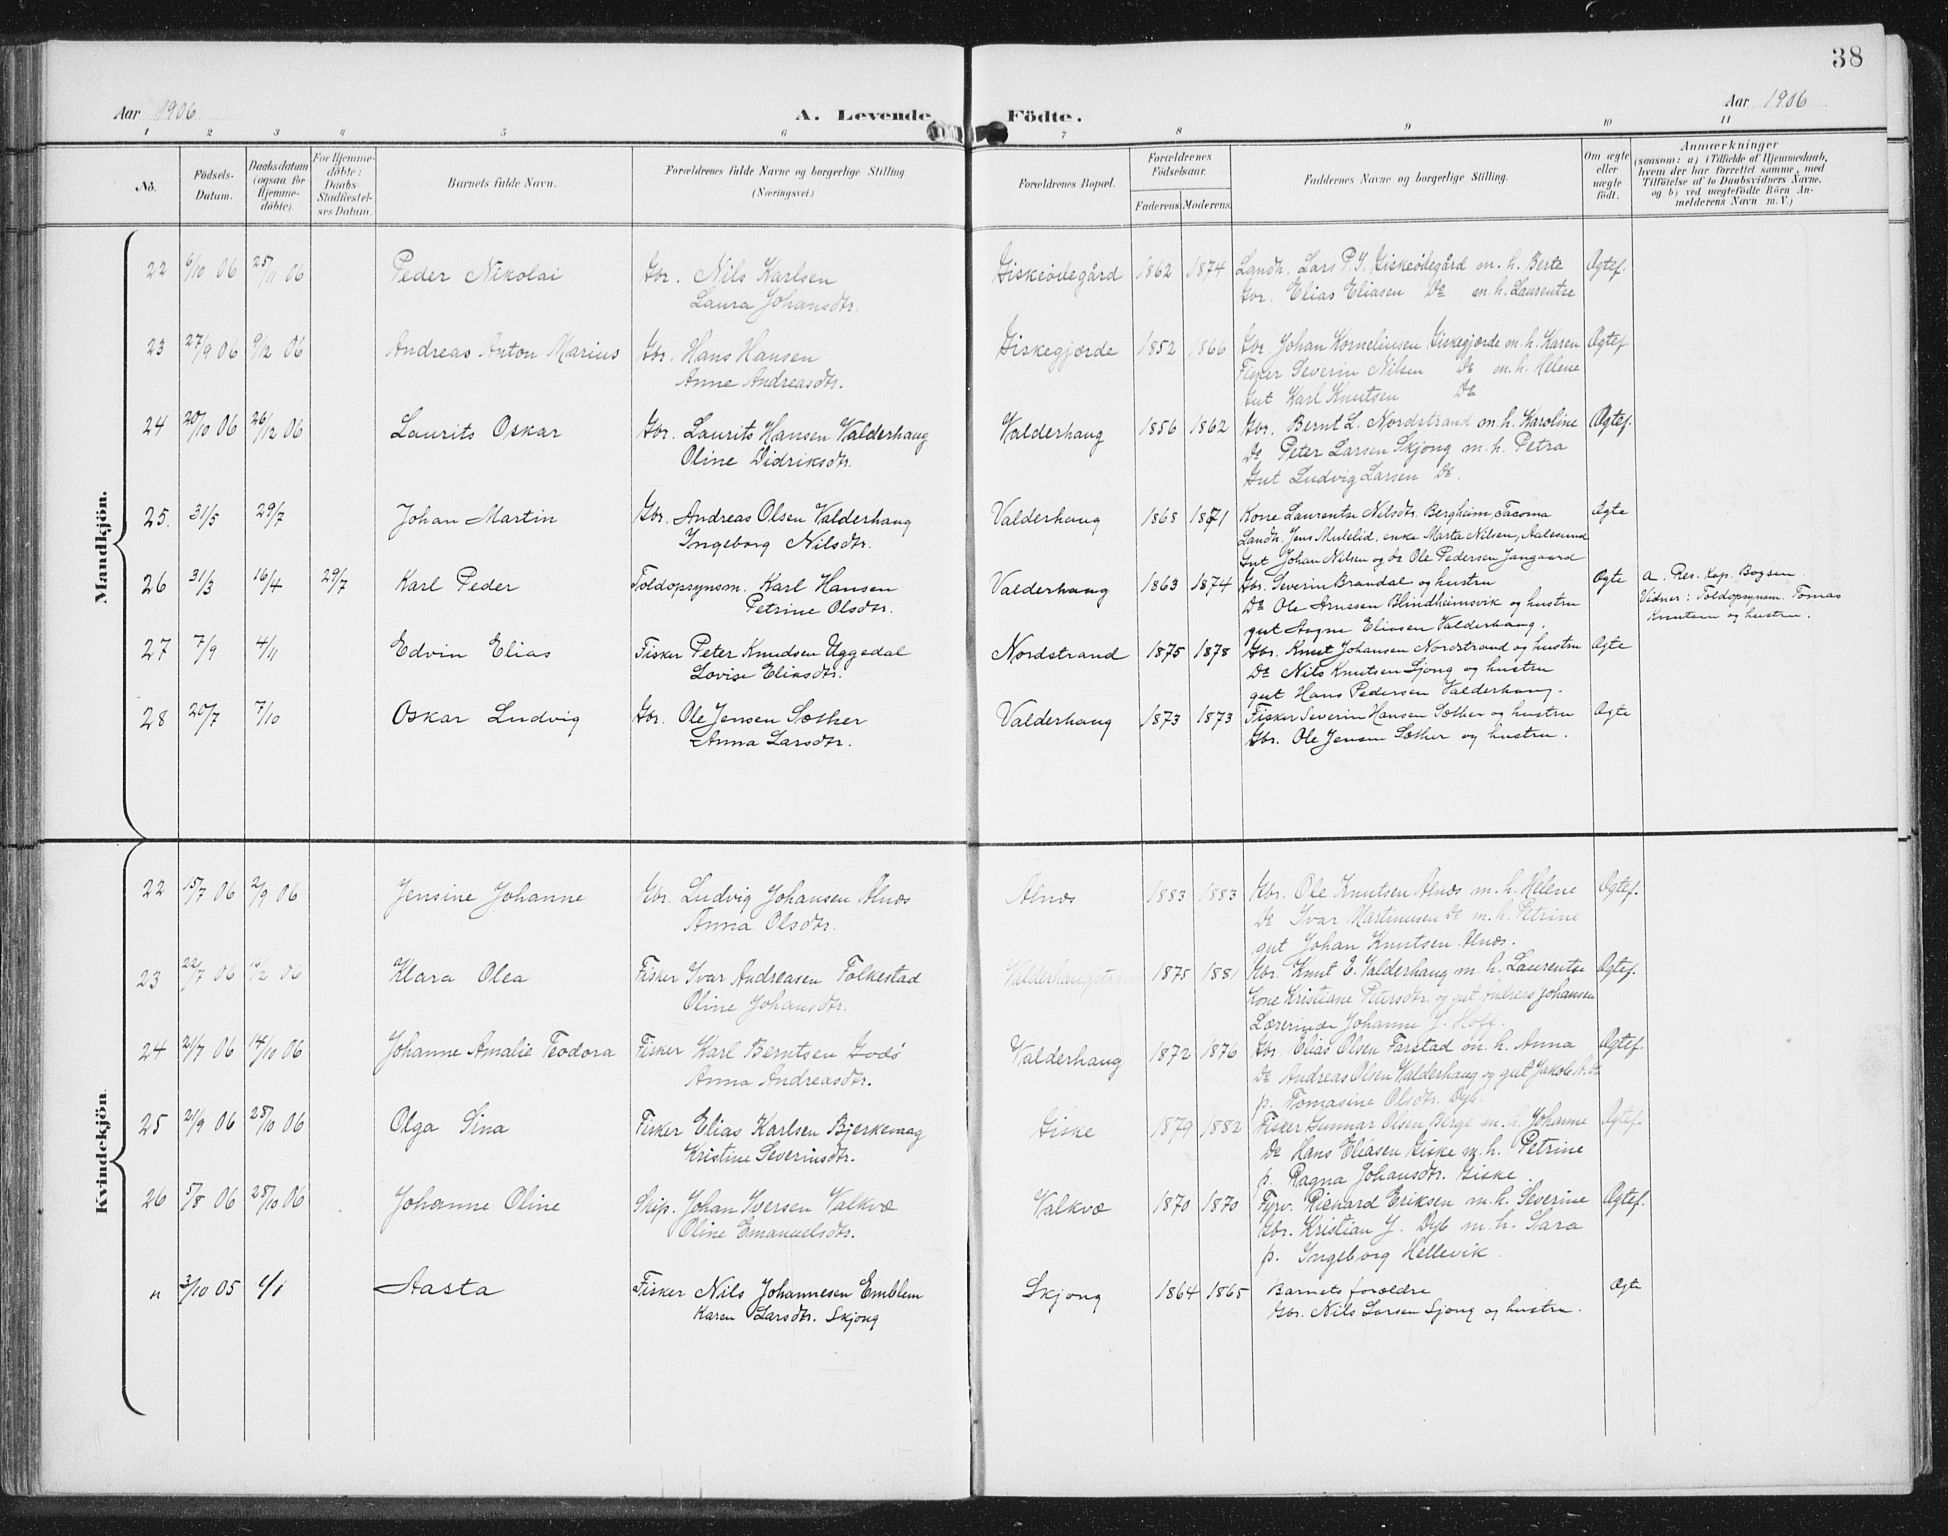 38
Aar 1906
A. Levende
Födte.
Aar 1906
1 2 3 4 5 6 7 8 9 10 11
No.
Födsels-
Datum.
Daabsdatum
(ogsaa for
Hjemme-
döbte).
For Hjemme-
döbte:
Daabs-
Stadfæstel-
ses Datum.
Barnets fulde Navn.
Forældrenes fulde Navne og borgerlige Stilling.
(Næringsvei.)
Forældrenes Bopæl.
Forældrenes
Födselsaar.
Faderens. Moderens.
Faddernes Navne og borgerlige Stilling.
Om ægte
eller
uægte
födt.
Anmærkninger
(saasom: a) i Tilfælde af Hjemmedaab,
hvem der har forrettet samme, med
Tilföielse af to Daabsvidners Navne,
og b) ved uægtefödte Börn An-
melderens Navn m. V.)
Mandkjön.
22 6/10 06 25/11 06 Peder Nikolai Gbr. Nils Karlsen Giskeödegård 1862 1874 Landh. Lars P. J. Giskeödegård m. h. Berte Ægtef.
Laura Johansdtr. Gbr. Elias Eliasen Do m. h. Laurentse
23 27/9 06 9/12 06 Andreas Anton Marius Gbr. Hans Hansen Giskegjerde 1852 1866 Gbr Johan Kornelinsen Giskegjerde m. h. Karen Ægtef.
Anne Andreasdtr. Fisker Severin Nilsen Do m. h. Helene
Gut Karl Knutsen Do
24 20/10 06 26/12 06 Laurits Oskar Gbr. Laurits Hansen Valderhaug Valderhaug 1856 1862 Gbr. Bernt L. Nordstrand m. h. Karoline Ægtef.
Oline Didriksdtr. Do Peter Larsen Skjong m. h. Petra
Gut Ludvig Larsen Do.
25. 31/5 29/7 Johan Martin Gbr. Andreas Olsen Valderhaug Valderhaug 1868 1871 Kone Laurentse Nilsdtr. Bergheim, Tacoma Ægte
Ingeborg Nilsdtr. Landh. Jens Mulelid, enke Marta Nilsen, Aalesund
Gut Johan Nilsen og do Ole Pedersen Jangaard
26 31/3 16/4 29/7 Karl Peder Toldopsynsm. Karl Hansen Valderhaug 1863 1874 Gbr. Severin Brandal og hustru Ægte a. Res. Kap. Bogsen.
Petrine Olsdtr. Do Ole Arnesen Blindheimsvik og hustru Vidner: Toldopsynsm. Tomas
gut Aagne Eliasen Valderhaug. Knutsen og hustru.
27 7/9 4/11 Edvin Elias Fisker Peter Knudsen Uggedal Nordstrand 1875 1878 Gbr. Knut Johansen Nordstrand og hustru Ægte
Lovise Eliasdtr. Do Nils Knutsen Sjong og hustru
gut Hans Pedersen Valderhaug.
28 20/7 7/10 Oskar Ludvig Gbr. Ole Jensen Sæther Valderhaug 1873 1873 Fisker Severin Hansen Sæther og hustru Ægte
Anna Larsdtr. Gbr. Ole Jensen Sæther og hustru.
Kvindekjön.
22 15/7 06 2/9 06 Jensine Johanne Gbr. Ludvig Johansen Alnæs Alnæs 1883 1883 Gbr. Ole Knutsen Alnæs m. h. Helene Ægtef.
Anna Olsdtr. Do Ivar Martinusen Do m. h. Petrine
gut Johan Knutsen Alnæs.
23 22/7 06 06 Klara Olea Fisker Ivar Andreasen Folkestad 1875 1881 Gbr. Knut E. Valderhaug m. h. Laurentse Ægtef.
Oline Johansdtr. Kone Kristiane Petersdtr. og gut Andreas Johansen
Lærerinde Johanne J. Hoff.
24 21/7 06 14/10 06 Johanne Amalie Teodora Fisker Karl Berntsen Godö Valderhaug 1872 1876 Gbr. Elias Olsen Farstad m. h. Anna Ægtef.
Anna Andreasdtr. Do Andreas Olsen Valderhaug og gut Jakob A. Do
p. Tomasine Olsdtr. Dyb.
25 21/9 06 28/10 06 Olga Sina Fisker Elias Karlsen Bjerkevaag Giske 1879 1882 Fisker Gunnar Olsen Berge m. h. Johanne Ægtef.
Kristine Severinsdtr. Do Hans Eliasen Giske m. h. Petrine
p. Ragna Johansdtr. Giske
26 5/8 06 28/10 06 Johanne Oline Skip. Johan Iversen Valkvæ Valkvæ 1870 1870 Fyrv. Rickard Eriksen m. h. Severine Ægtef.
Oline Emanuelsdtr. Gbr. Kristian J. Dyb m. h. Sara
p. Ingeborg Hellevik.
" 3/10 05 1/1 Aasta Fisker Nils Johannesen Emblem Skjong 1864 1865 Barnets forældre Ægte
Karen Larsdtr. Skjong Gbr. Nils Larsen Sjong og hustru.